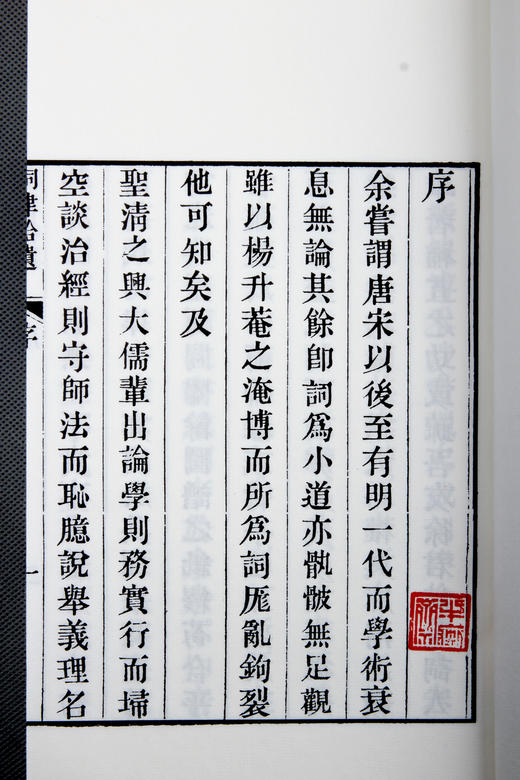 序
余嘗謂唐宋以後至有明一代而學術衰
息無論其餘卽詞爲小道亦骩骳無足觀
雖以楊升菴之淹博而所爲詞厖亂鉤裂
他可知矣及
聖淸之興大儒輩出論學則務實行而埽
空談治經則守師法而恥臆說舉義理名
詞律拾遺
序
一